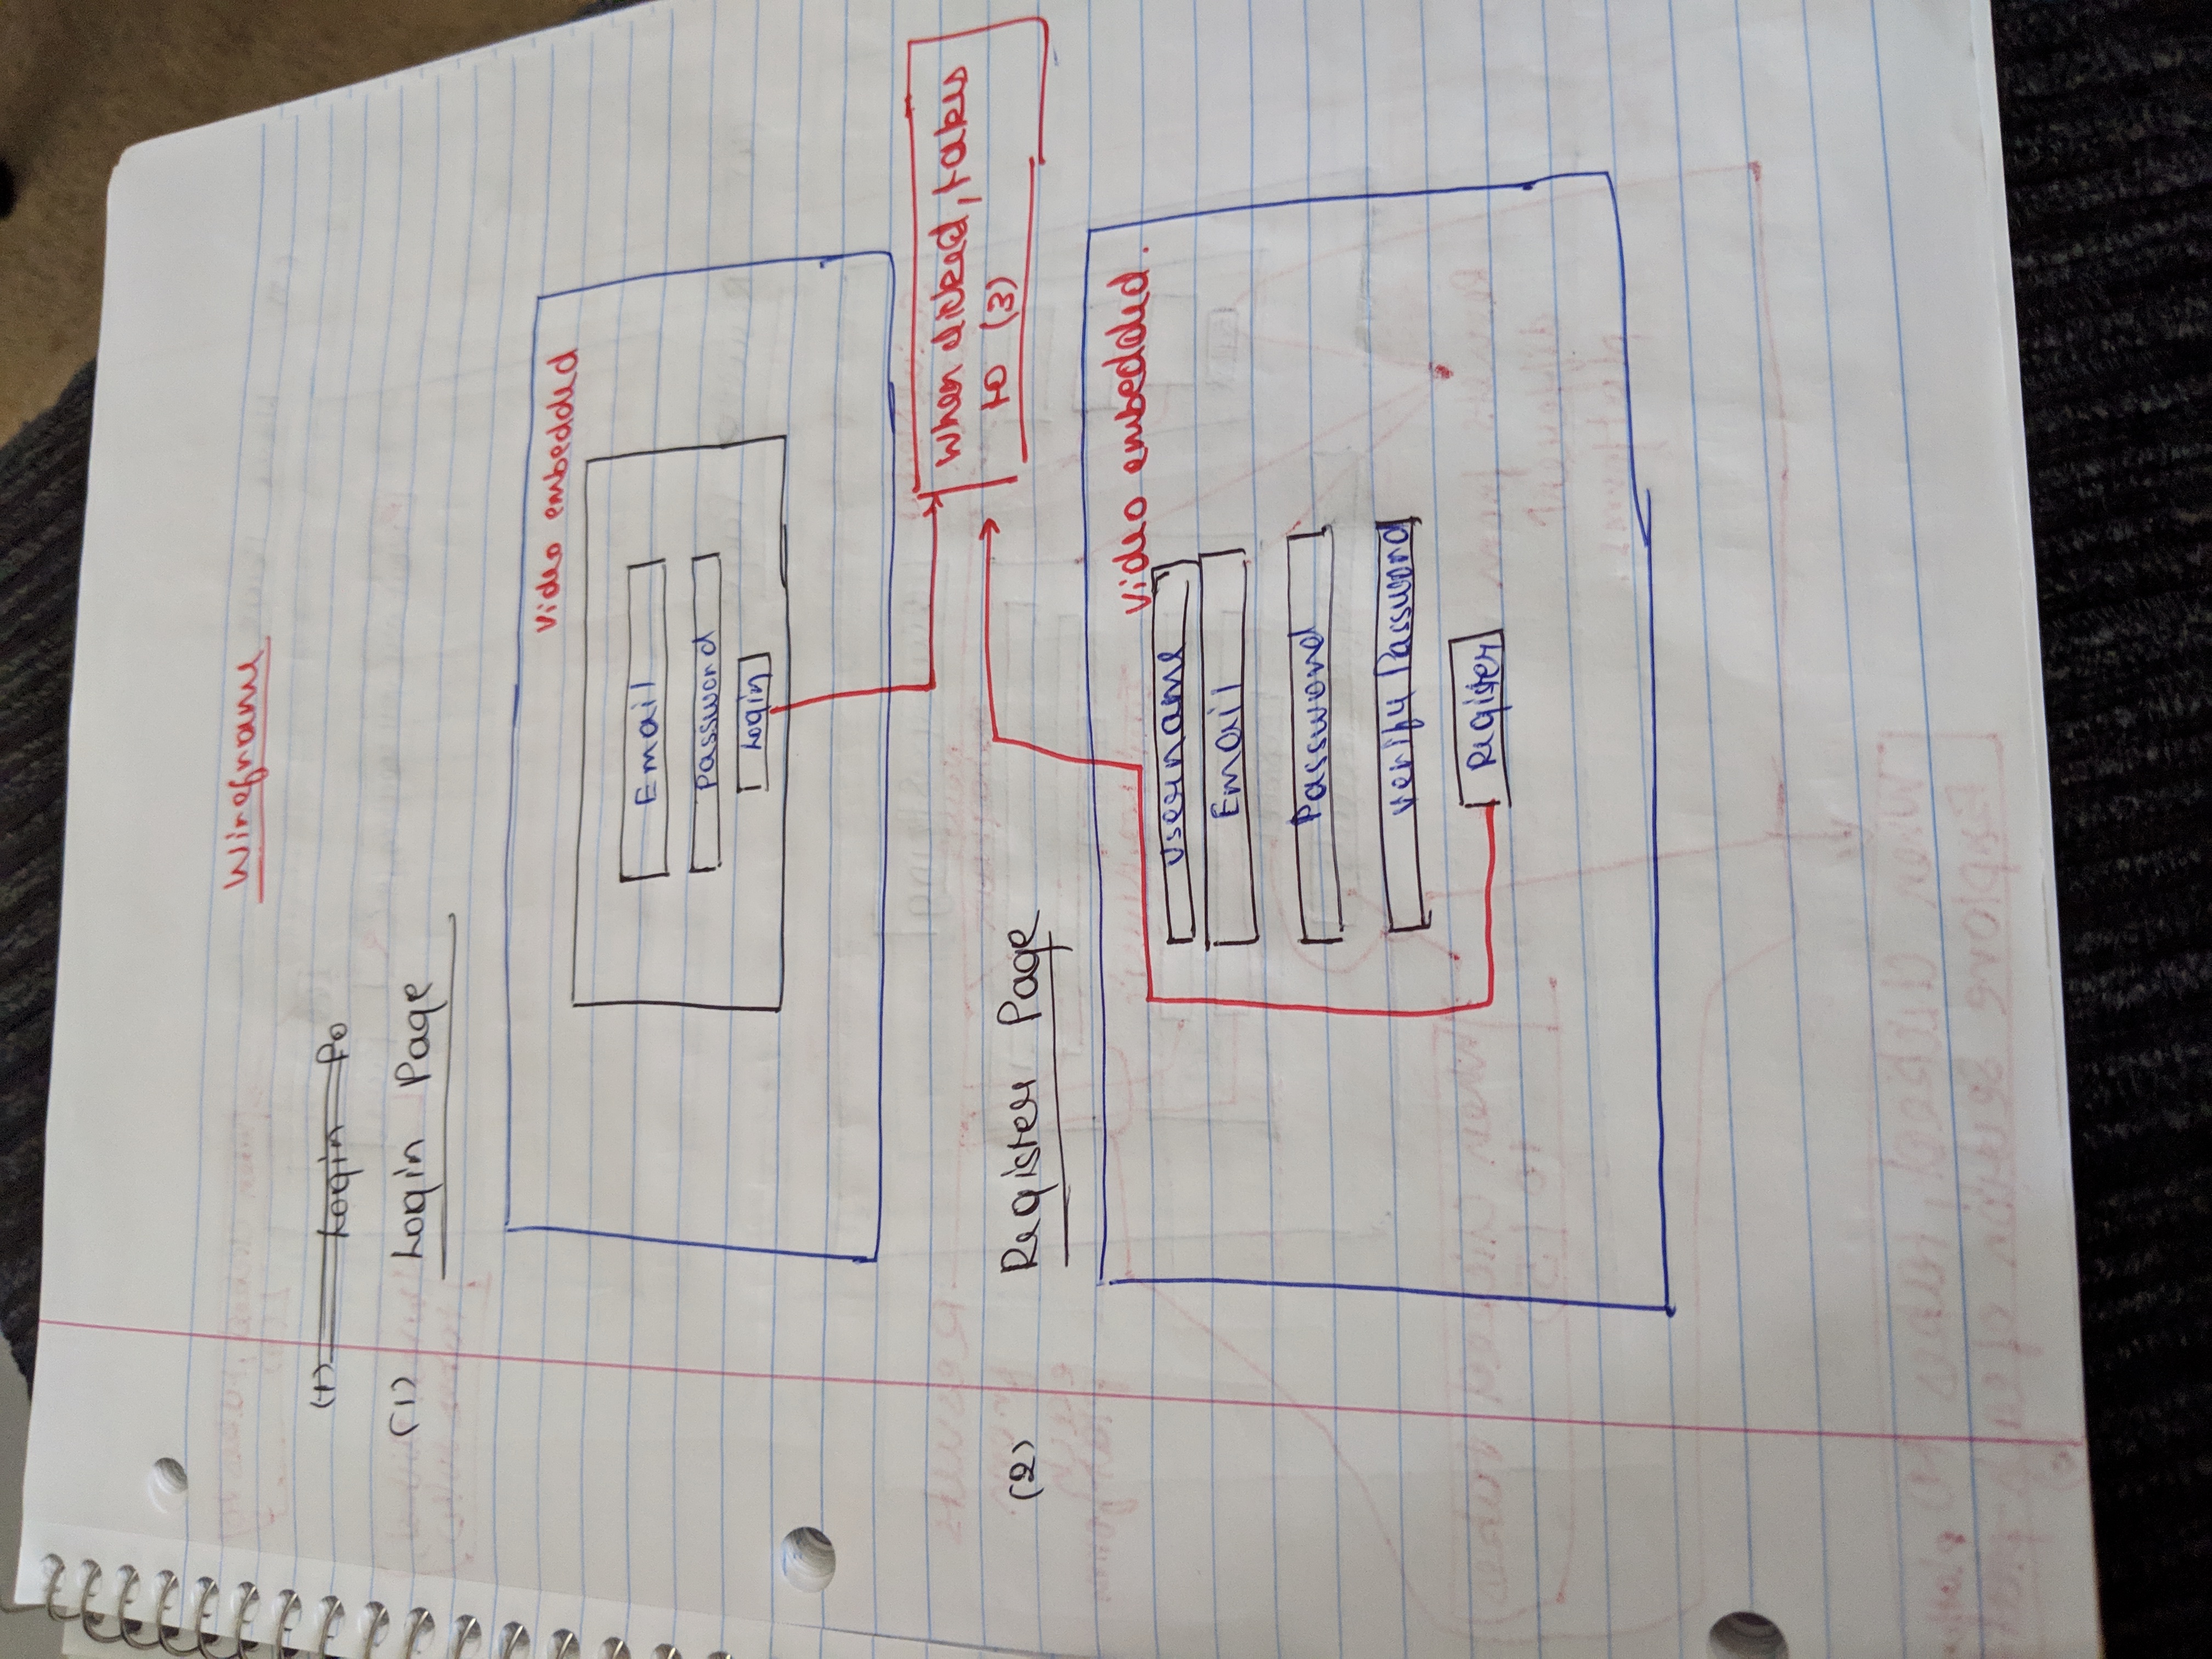 Wireframe
(1) Login Pa
(1) Login Page
Video embedded
Email
Password
Login
When clicked, takes
to (3)
(2) Register Page
Video embedded.
Username
Email
Password
Verify Password
Register